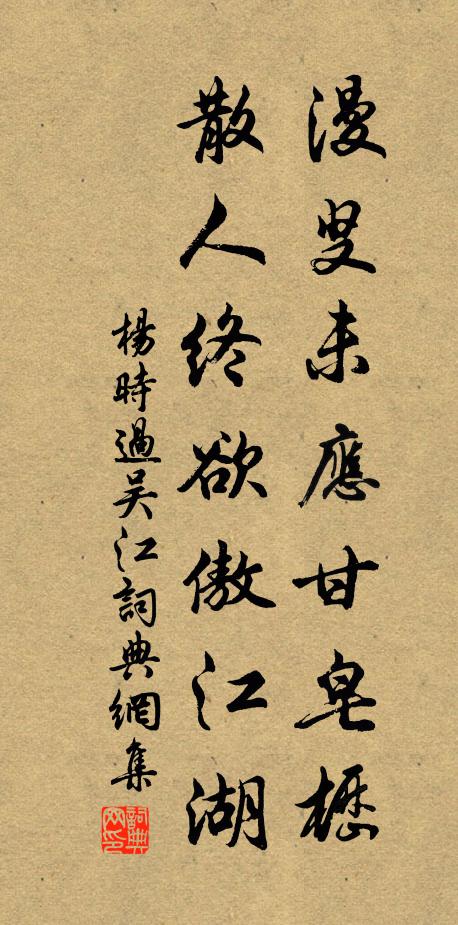 漫叟未應甘皂櫪
散人終欲傲江湖
楊時過吳江詞典網集
詞典網印